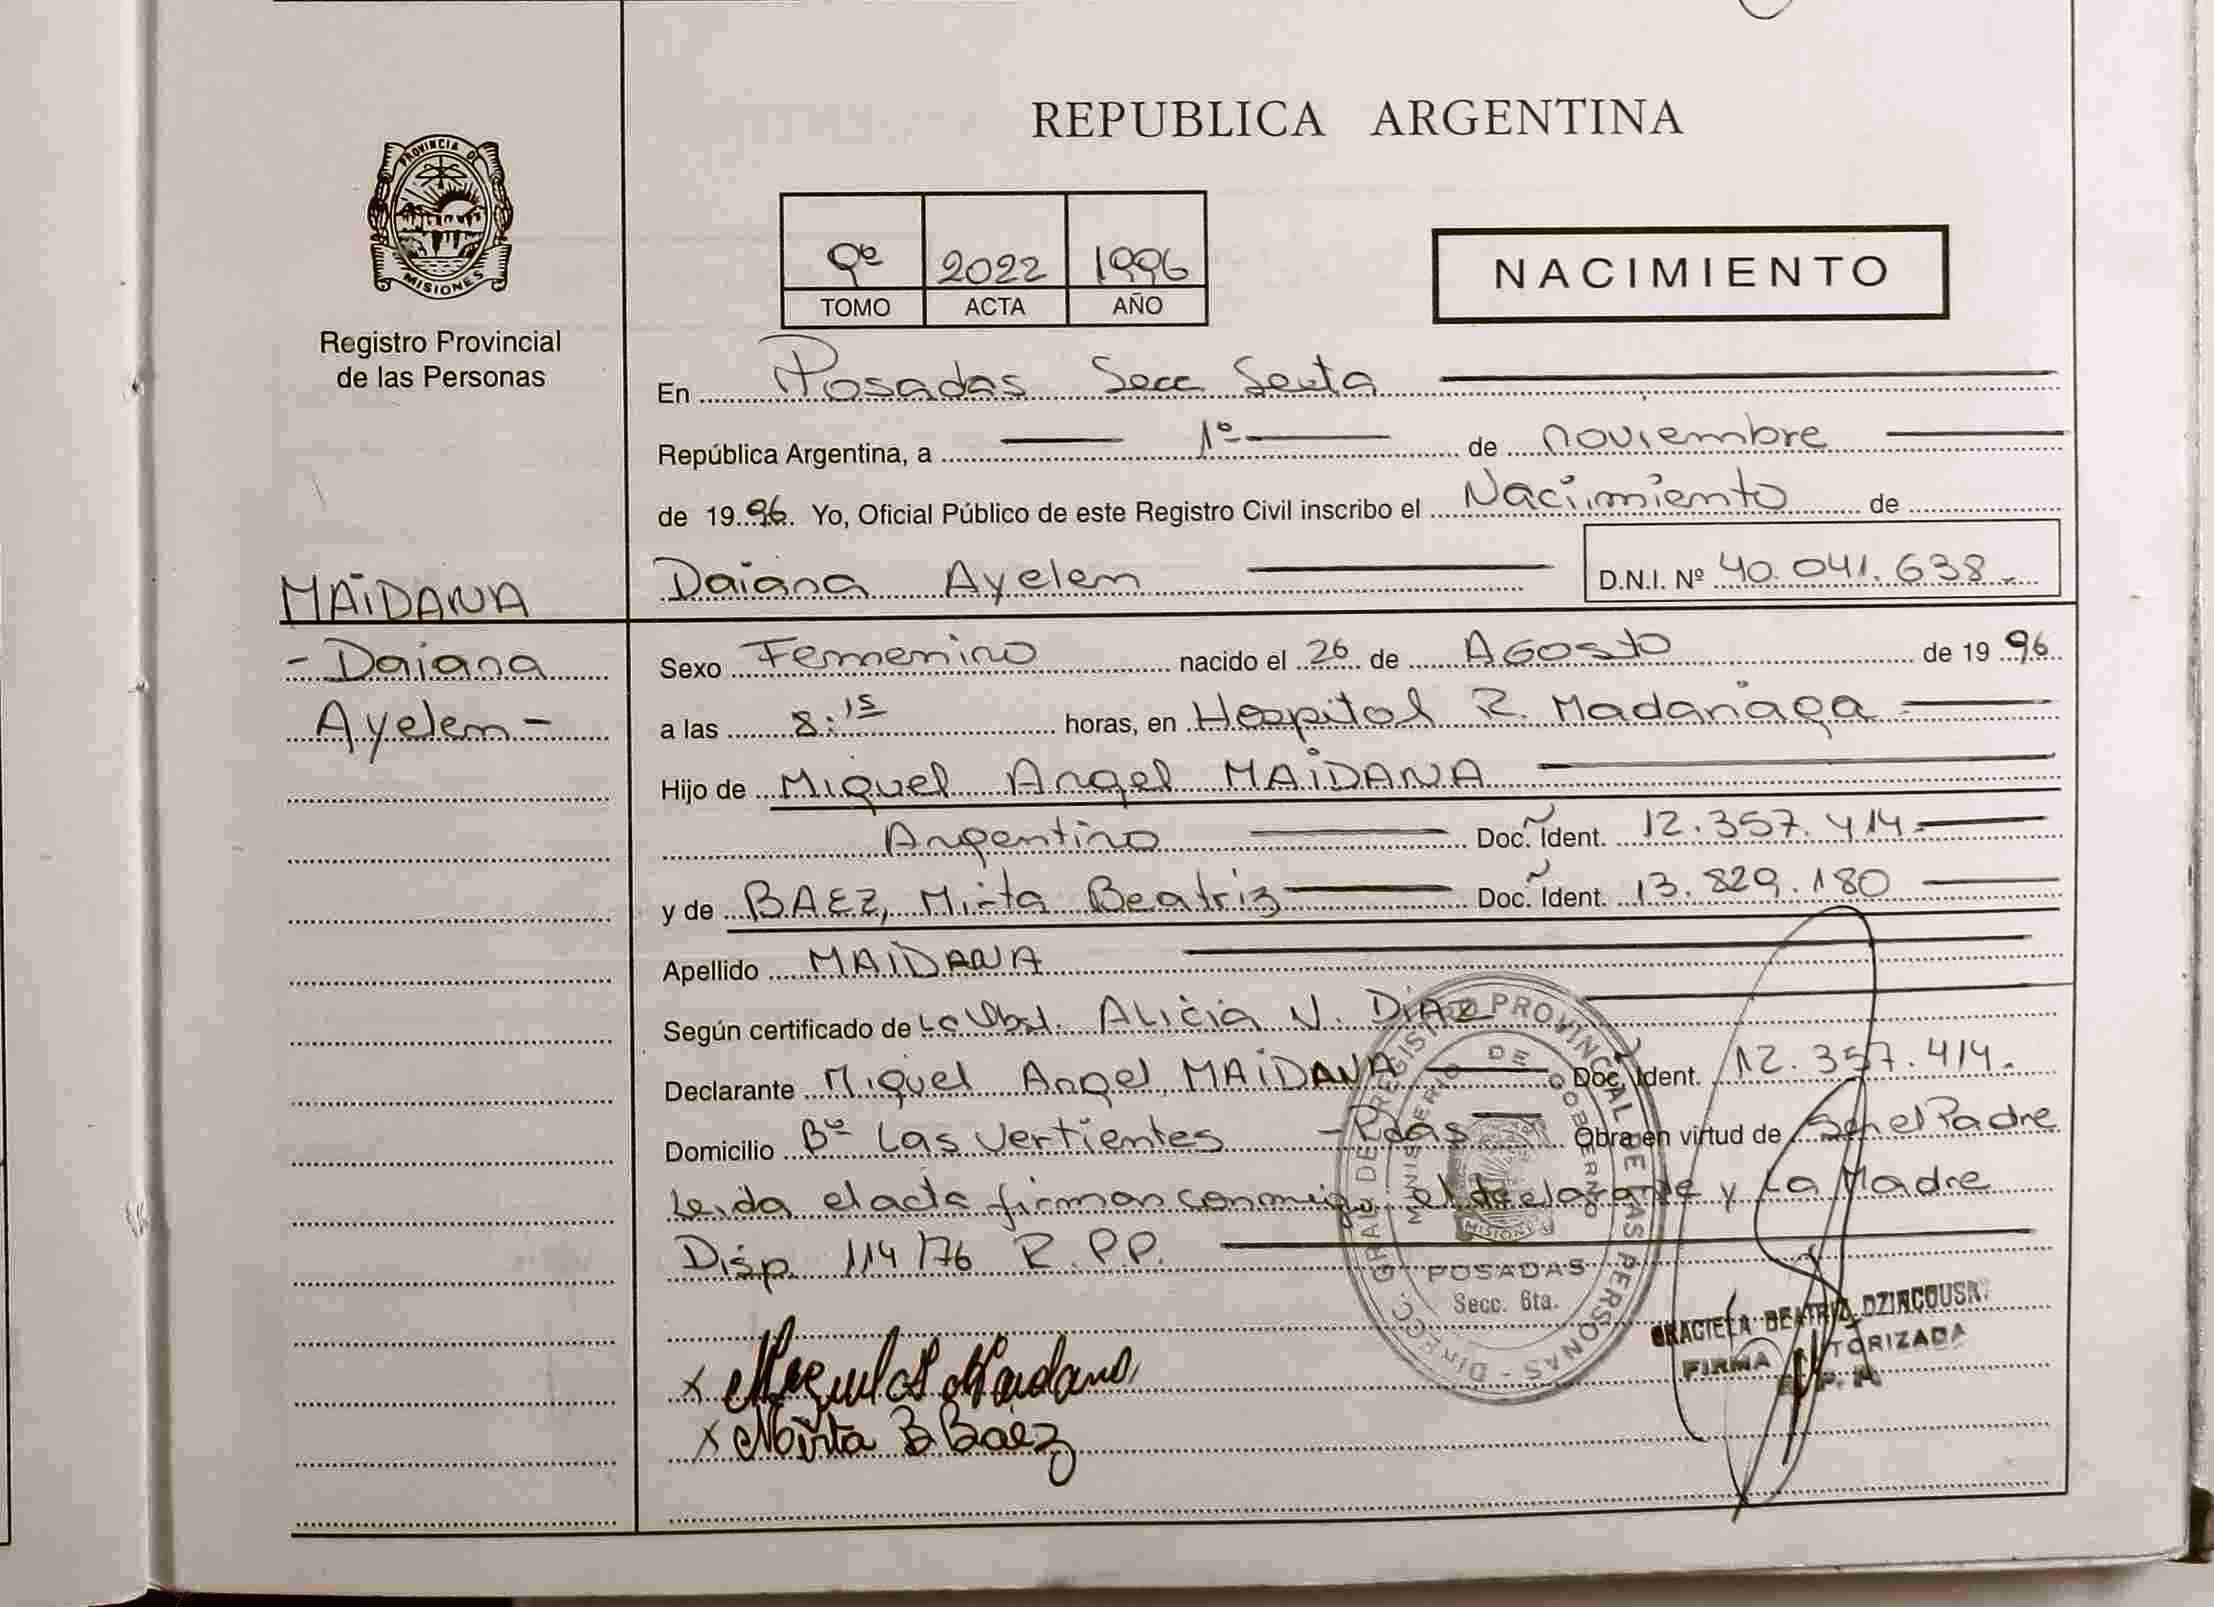 REPUBLICA ARGENTINA
PROVINCIA DE
MISIONES
Registro Provincial
de las Personas
9º 2022 1996
TOMO ACTA AÑO
NACIMIENTO
En Posadas Secc. Sexta
República Argentina, a 1º de noviembre
de 1996. Yo, Oficial Público de este Registro Civil inscribo el Nacimiento de
Daiana Ayelem D.N.I. Nº 40.041.638.-
MAIDANA
- Daiana
Ayelem -
Sexo Femenino nacido el 26 de Agosto de 1996
a las 8:15 horas, en Hospital R. Madariaga
Hijo de Miguel Angel MAIDANA
Argentino Doc. Ident. 12.357.414.
y de BAEZ, Mirta Beatriz Doc. Ident. 13.829.180
Apellido MAIDANA
Según certificado de La Obst. Alicia N. DIAZ
Declarante Miguel Angel MAIDANA Doc. Ident. 12.357.414.
Domicilio Bº Las Vertientes - Pdas Obra en virtud de Ser el Padre
Leida el acta firman conmigo el declarante y La Madre
Disp. 114/76 R.P.P.
DIRECC. GRAL DE REGISTRO PROVINCIAL DE LAS PERSONAS
MINISTERIO DE GOBIERNO
MISIONES
POSADAS
Secc. 6ta.
GRACIELA BEATRIZ
FIRMA AUTORIZADA
x Miguel A Maidana
x Mirta B Baez